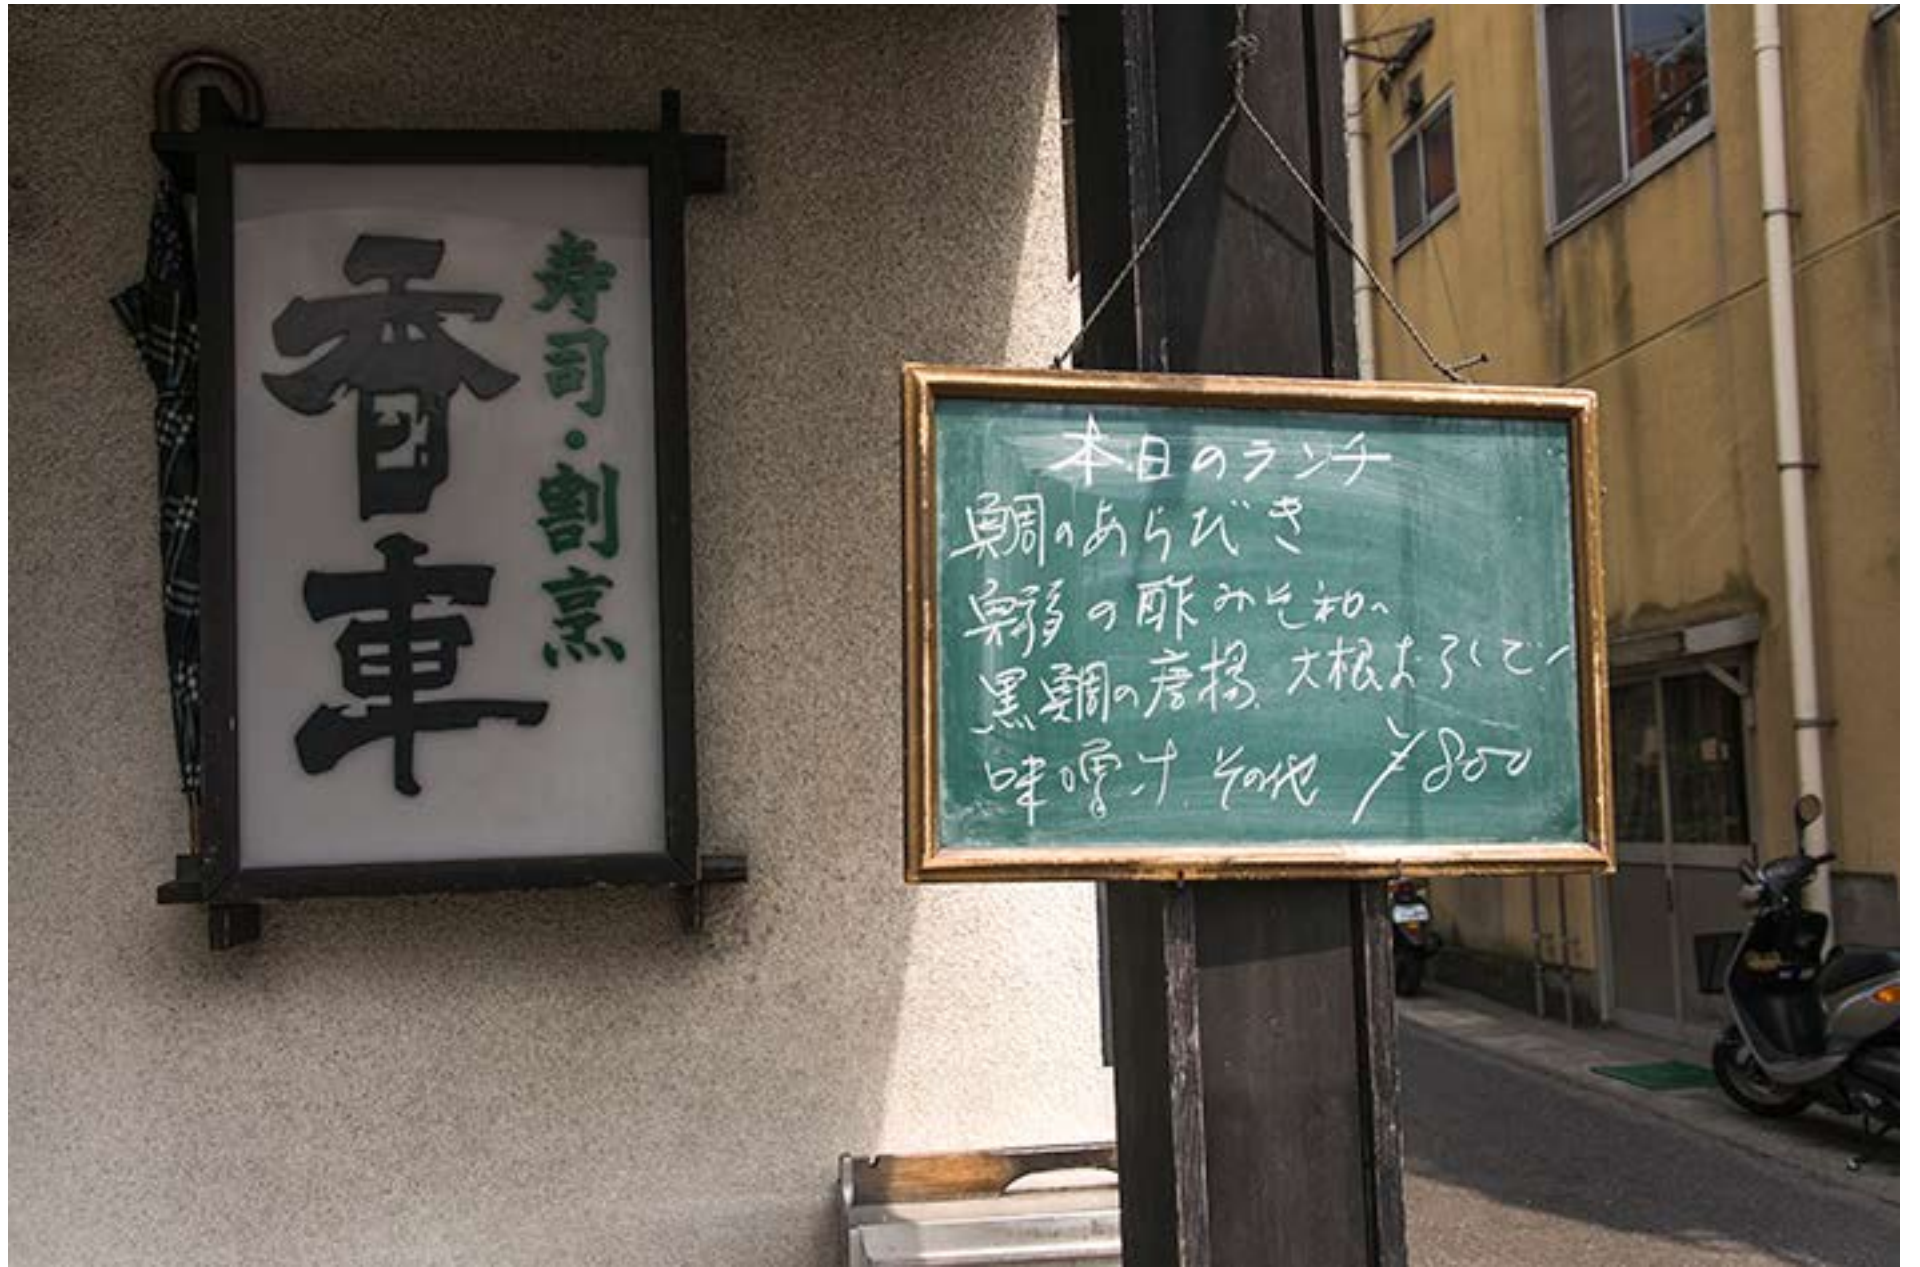 寿司・割烹
香車
本日のランチ
鯛のあらだき
鰯の酢みそ和へ
黒鯛の唐揚 大根おろしで
味噌汁 その他 ¥800